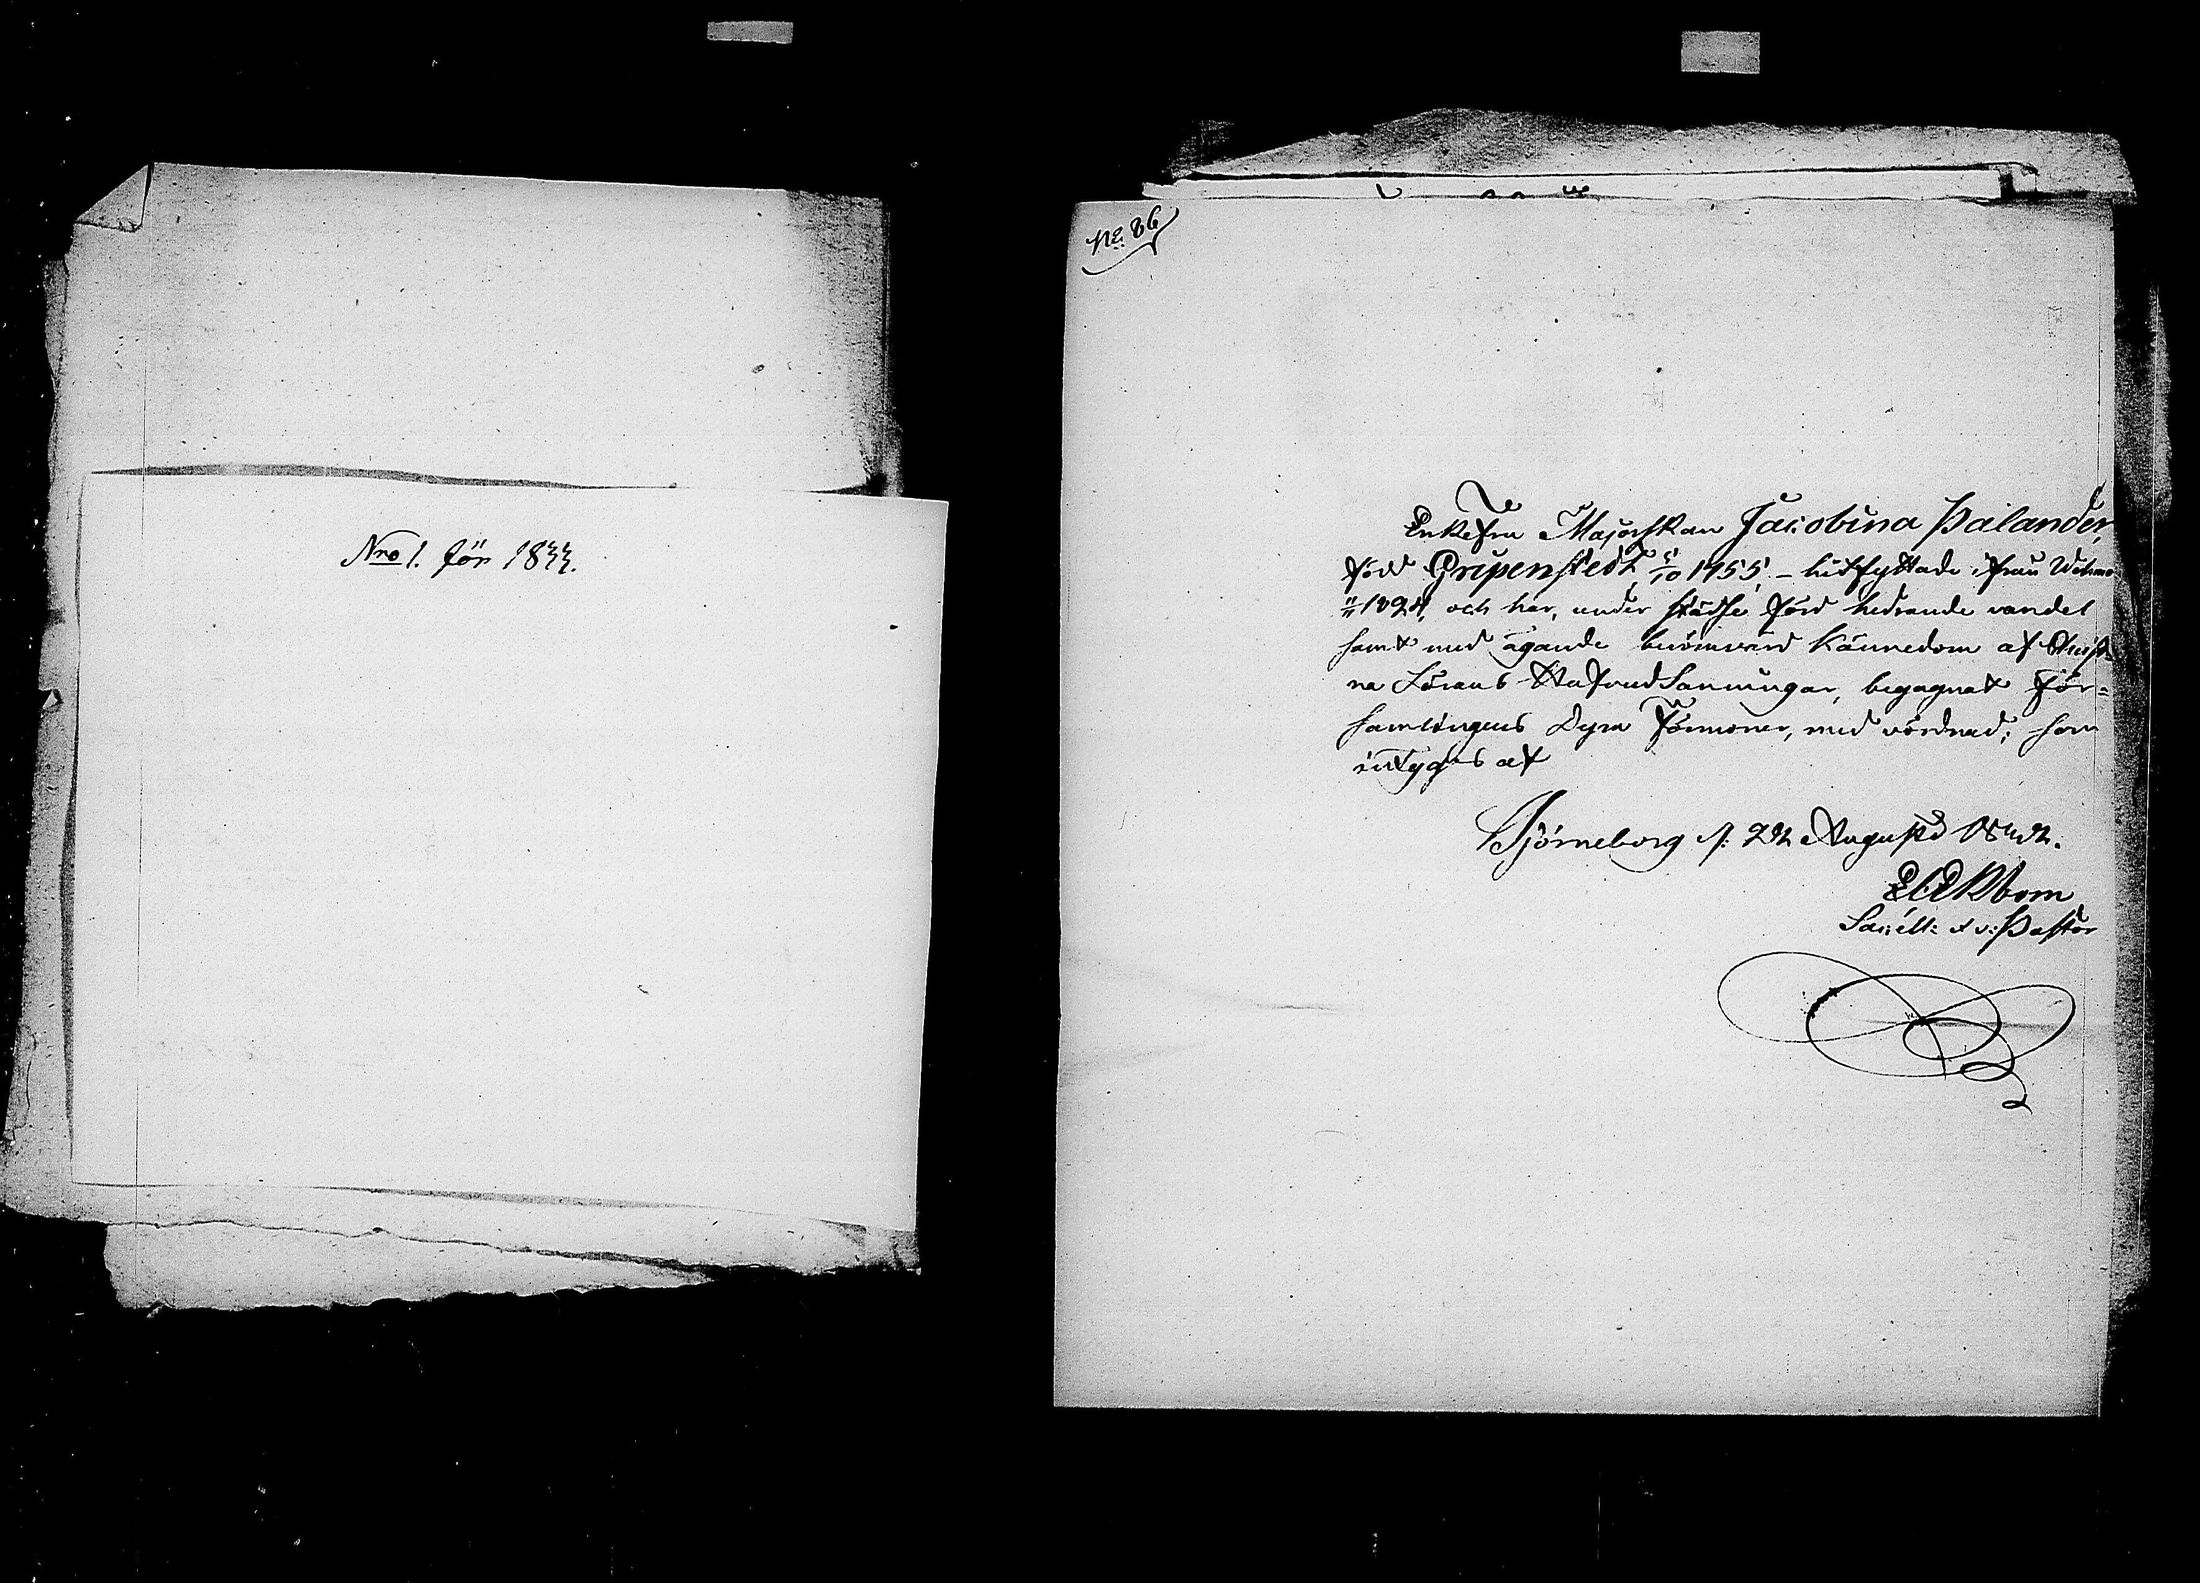 Nro 1. för 1833.
No 86
Enkefru Majorskan Jacobina Palander,
född Gripenstedt 5/10 1755, – hitflyttade ifrån
1824, och har, under städse förd hedrande vandel
samt med ägande berömvärd kännedom af Christ-
na Lärans Hufvud Sanningar, begagnat För=
samlingens Dyra Förmoner, med vördnad; som
intygas af
Björneborg d: 22 Augusti 1832.
Ekbom
Sacell: v: Pastor